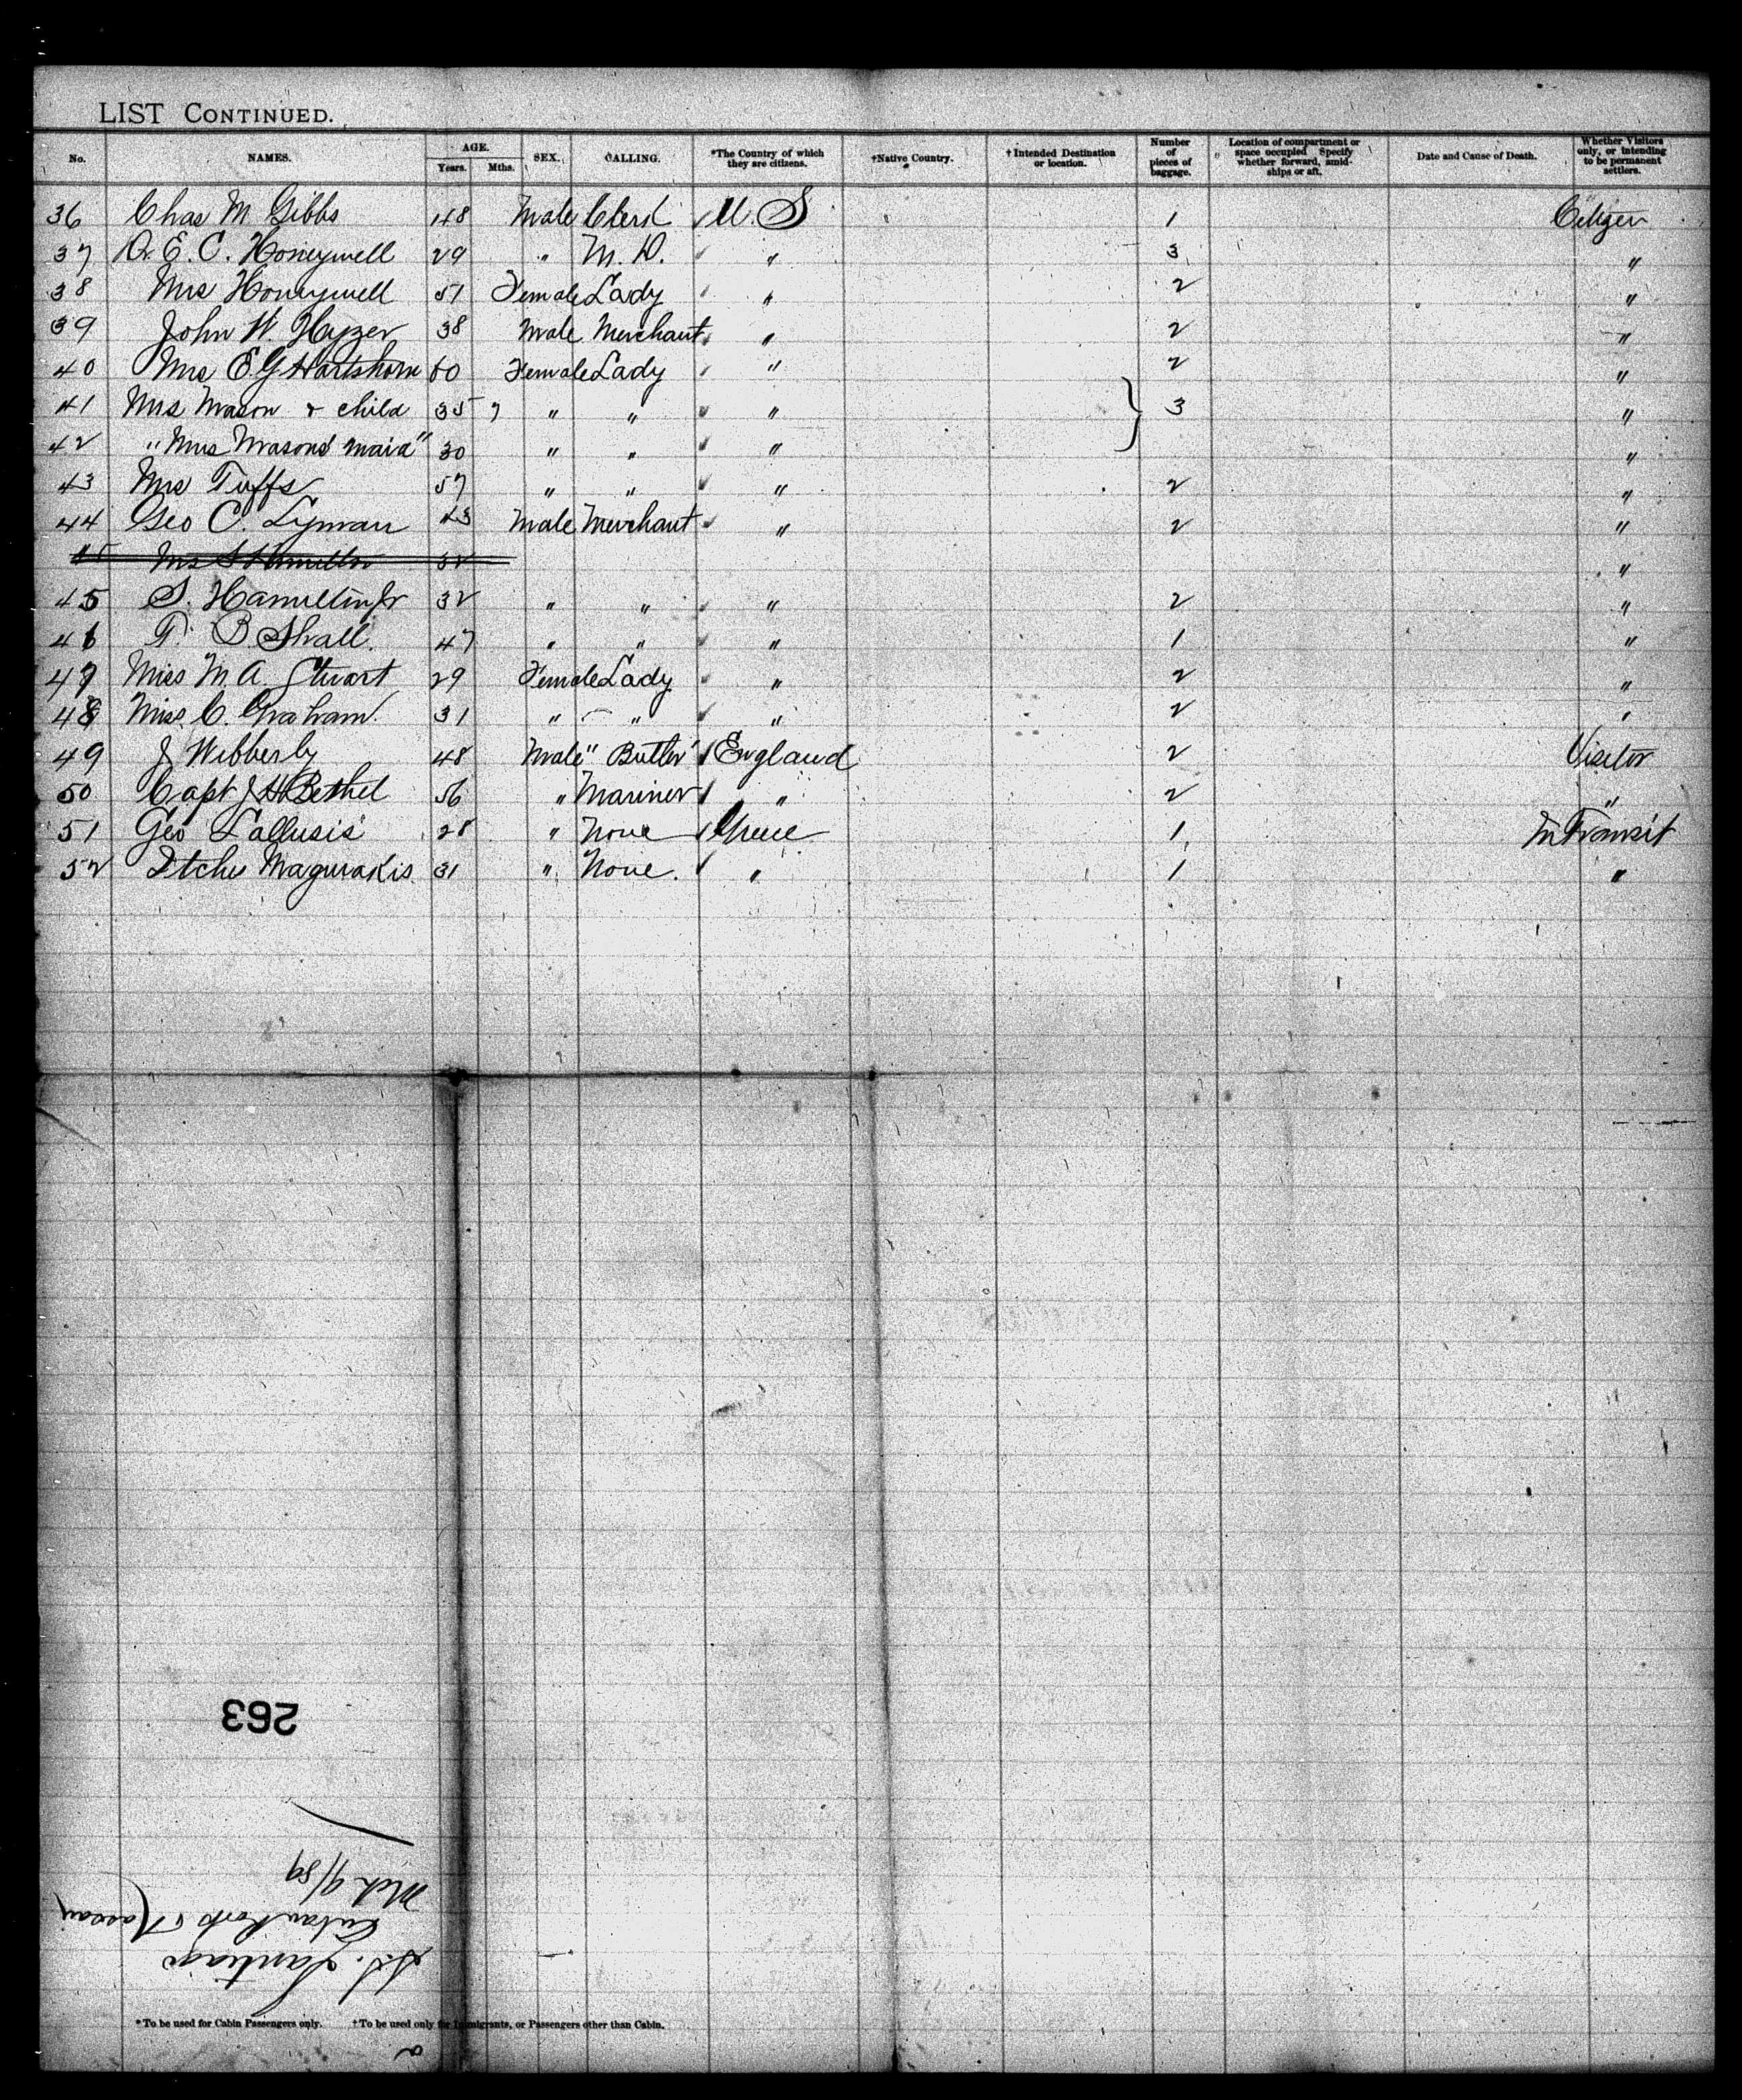 LIST CONTINUED.
No. NAMES. AGE. Years. Mths. SEX. CALLING. *The Country of which they are citizens. †Native Country. †Intended Destination or location. Number of pieces of baggage. Location of compartment or space occupied Specify whether forward, amidships or aft. Date and Cause of Death. Whether Visitors only, or intending to be permanent settlers.
36 Chas M Gibbs 48 Male Clerk U.S 1 Citizen
37 Dr. E. C. Honeywell 29 " M.D. " 3 "
38 Mrs Honeywell 51 Female Lady " 2 "
39 John W. Hyzer 38 Male Merchant " 2 "
40 Mrs E G Hartshorn 60 Female Lady " 2 "
41 Mrs Mason & child 35 7 " " " } 3 "
42 "Mrs Masons maid" 30 " " " "
43 Mrs Tuffs 57 " " " 2 "
44 Geo C. Lyman 43 Male Merchant " 2 "
45 Mrs S Hamilton 32 "
45 S. Hamilton Jr 32 " " " 2 "
46 T. B. Shall. 47 " " " 1 "
47 Miss M. A. Stuart 29 Female Lady " 2 "
48 Miss C. Graham. 31 " " " 2 "
49 J Webberly 48 Male "Butler" England 2 Visitor
50 Capt J H Bethel 56 " Mariner " 2 "
51 Geo Callusis 28 " None Greece 1 In Transit
52 Magurakis 31 " None. " 1 "
263
S.S. Santiago
Cuban Ports & Nassau
Mch 9/89
*To be used for Cabin Passengers only. †To be used only for Immigrants, or Passengers other than Cabin.